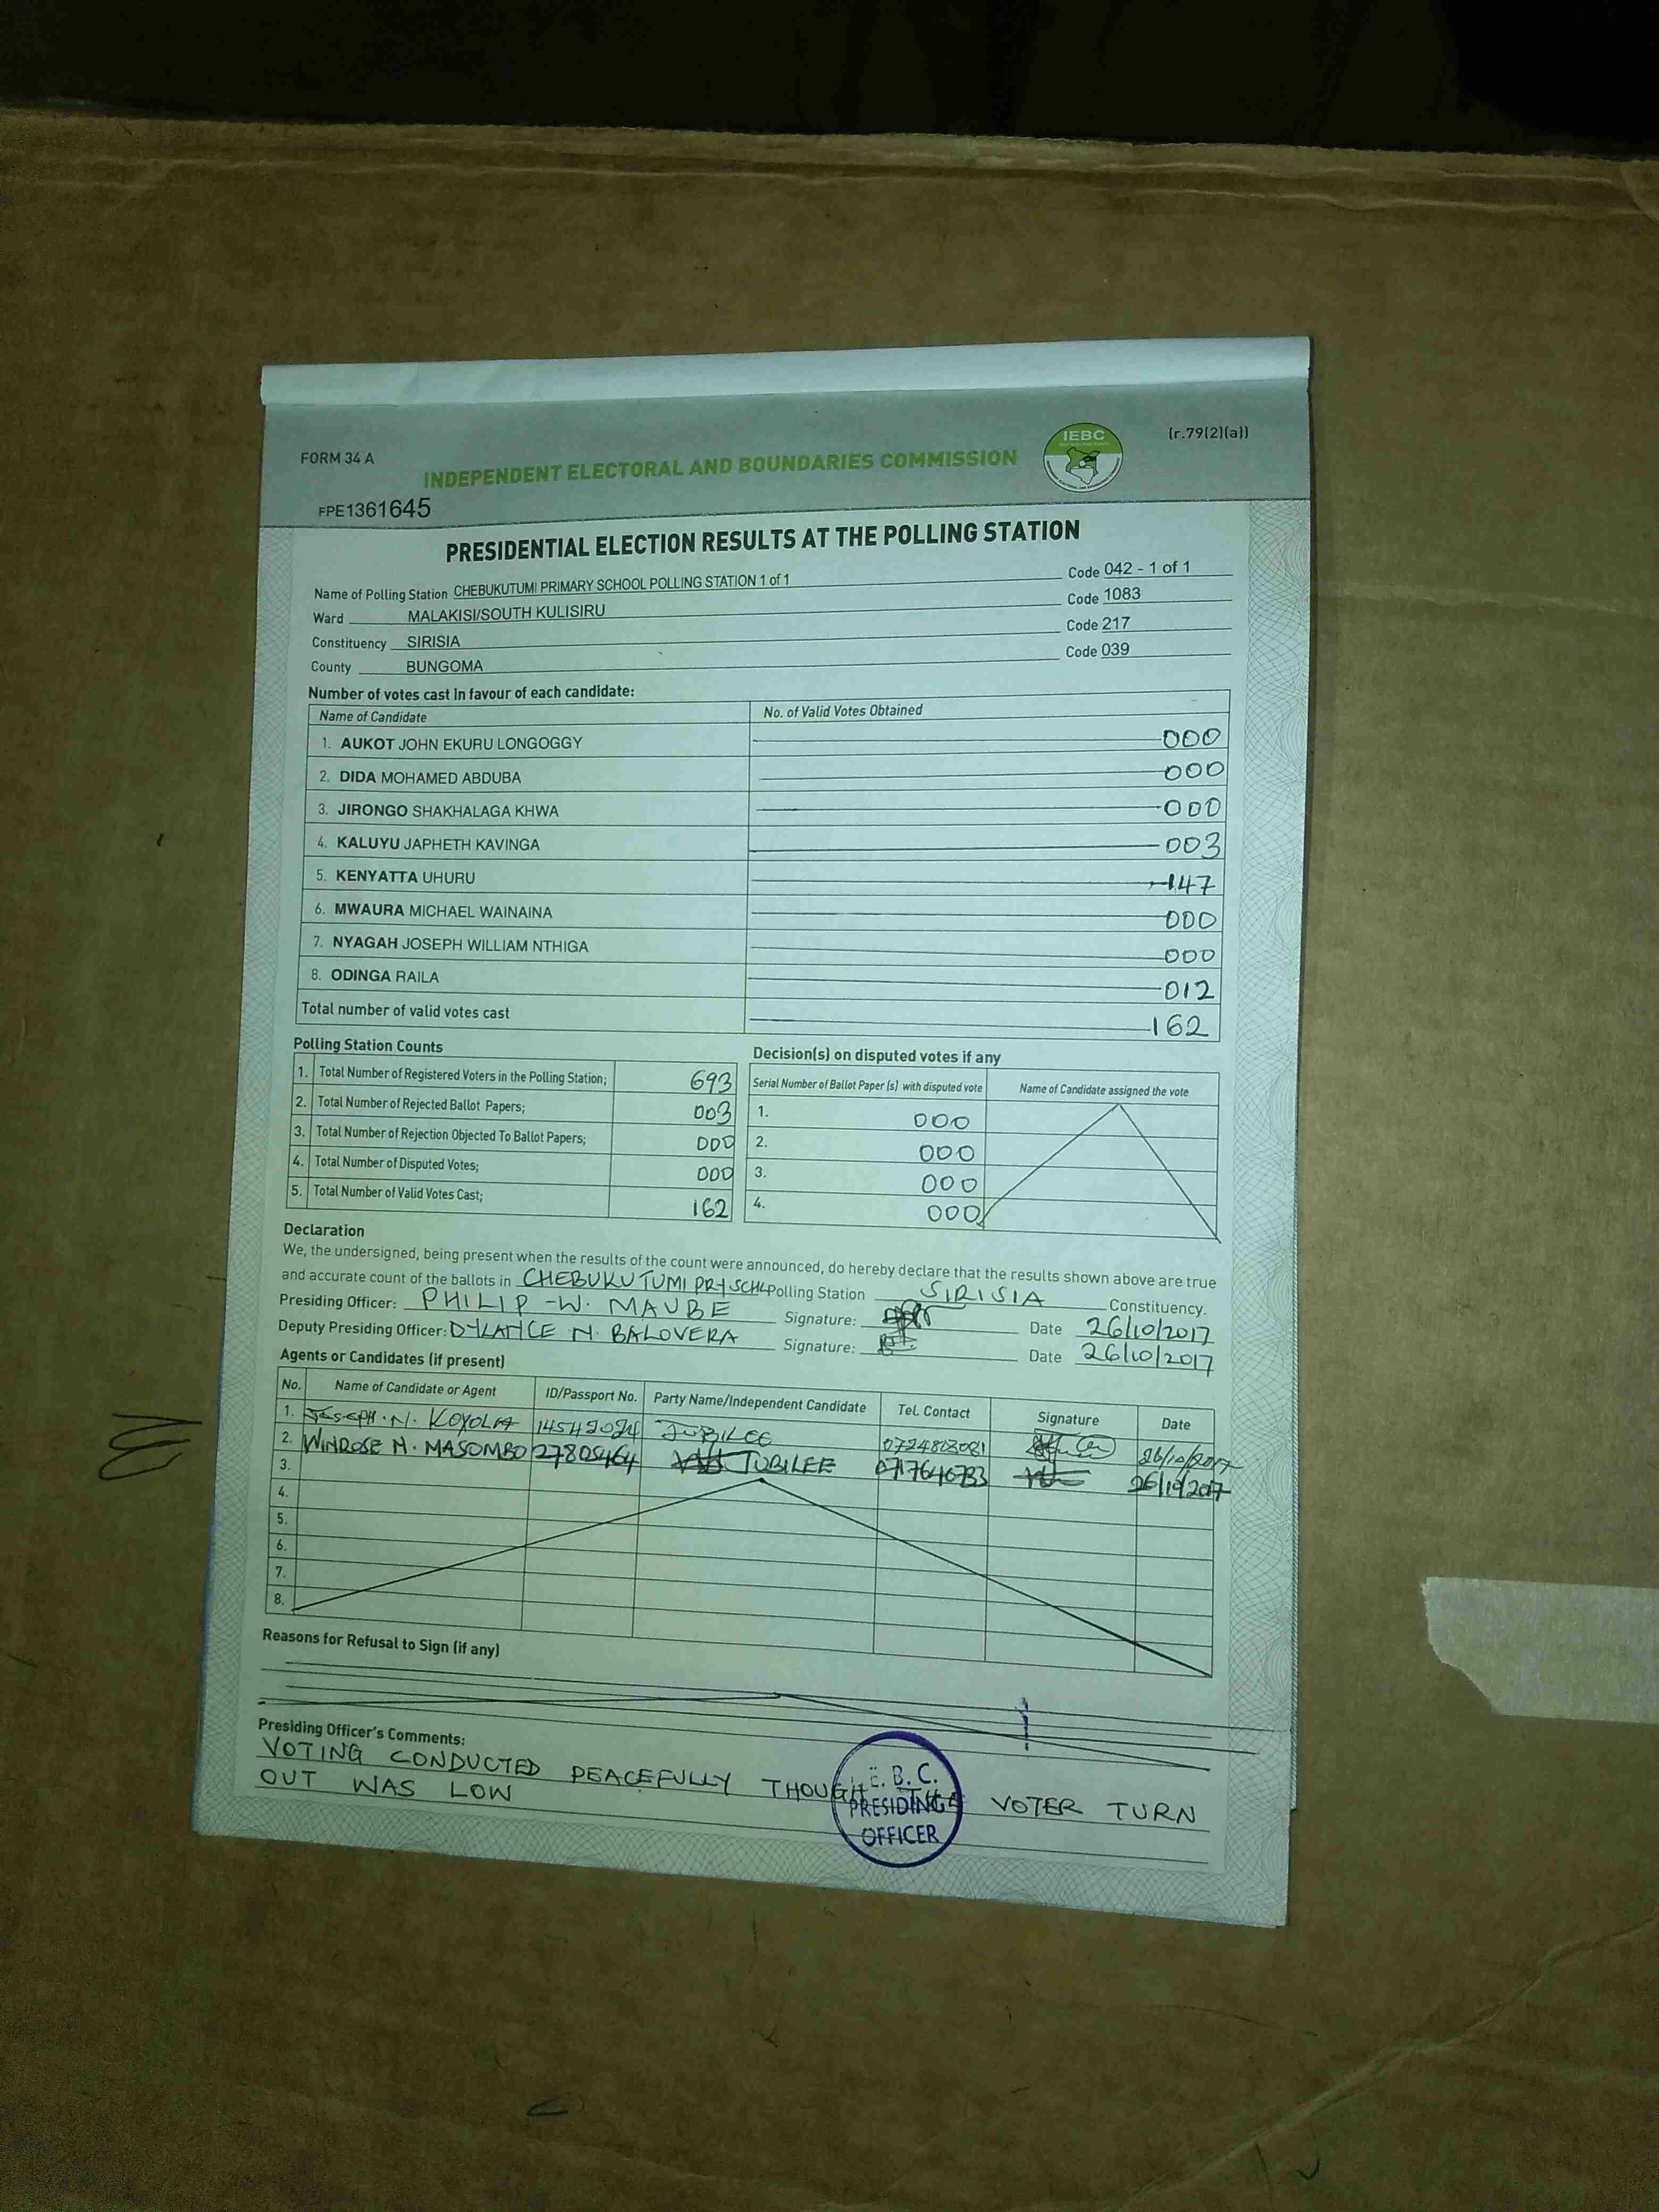 FORM 34 A
INDEPENDENT ELECTORAL AND BOUNDARIES COMMISSION
IEBC
(r.79(2)(a))
FPE1361645
PRESIDENTIAL ELECTION RESULTS AT THE POLLING STATION
Name of Polling Station CHEBUKUTUMI PRIMARY SCHOOL POLLING STATION 1 of 1 Code 042 - 1 of 1
Ward MALAKISI/SOUTH KULISIRU Code 1083
Constituency SIRISIA Code 217
County BUNGOMA Code 039
Number of votes cast in favour of each candidate:
Name of Candidate No. of Valid Votes Obtained
1. AUKOT JOHN EKURU LONGOGGY 000
2. DIDA MOHAMED ABDUBA 000
3. JIRONGO SHAKHALAGA KHWA 000
4. KALUYU JAPHETH KAVINGA 003
5. KENYATTA UHURU 147
6. MWAURA MICHAEL WAINAINA 000
7. NYAGAH JOSEPH WILLIAM NTHIGA 000
8. ODINGA RAILA 012
Total number of valid votes cast 162
Polling Station Counts
1. Total Number of Registered Voters in the Polling Station; 693
2. Total Number of Rejected Ballot Papers; 003
3. Total Number of Rejection Objected To Ballot Papers; 000
4. Total Number of Disputed Votes; 000
5. Total Number of Valid Votes Cast; 162
Decision(s) on disputed votes if any
Serial Number of Ballot Paper (s) with disputed vote Name of Candidate assigned the vote
1. 000
2. 000
3. 000
4. 000
Declaration
We, the undersigned, being present when the results of the count were announced, do hereby declare that the results shown above are true
and accurate count of the ballots in CHEBUKUTUMI PRY SCHL Polling Station SIRISIA Constituency.
Presiding Officer: PHILIP -W. MAUBE Signature: Date 26/10/2017
Deputy Presiding Officer: N. BALOVERA Signature: Date 26/10/2017
Agents or Candidates (if present)
No. Name of Candidate or Agent ID/Passport No. Party Name/Independent Candidate Tel. Contact Signature Date
1. JOSEPH. N. JUBILEE 26/10/2017
2. WINROSE N. MASOMBO JUBILEE 0717646733 26/10/2017
3.
4.
5.
6.
7.
8.
Reasons for Refusal to Sign (if any)
Presiding Officer's Comments:
VOTING CONDUCTED PEACEFULLY THOUGH THE VOTER TURN
OUT WAS LOW
I.E.B.C.
PRESIDING
OFFICER